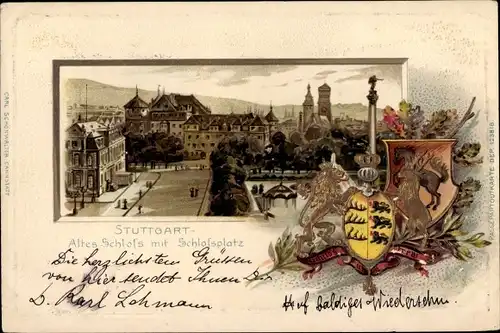 CARL SCHÖNWALTER, CANNSTATT
STUTTGART-
Altes Schloſs mit Schloſsplatz
Die herzlichsten Grüssen
von hier sendet Ihnen
Karl Lohmann
Auf baldiges Wiedersehn.